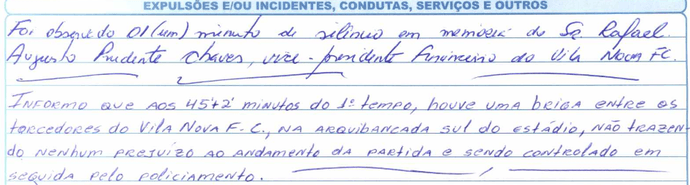 EXPULSÕES E/OU INCIDENTES, CONDUTAS, SERVIÇOS E OUTROS
Foi observado 01 (um) minuto de silêncio em memória do Sr. Rafael
Augusto Prudente Chaves, vice-presidente Financeiro do Vila Nova FC.
INFORMO QUE AOS 45'+2' MINUTOS DO 1º TEMPO, HOUVE UMA BRIGA ENTRE OS
TORCEDORES DO VILA NOVA F.C., NA ARQUIBANCADA SUL DO ESTÁDIO, NÃO TRAZEN-
DO NENHUM PREJUÍZO AO ANDAMENTO DA PARTIDA E SENDO CONTROLADO EM
SEGUIDA PELO POLICIAMENTO.